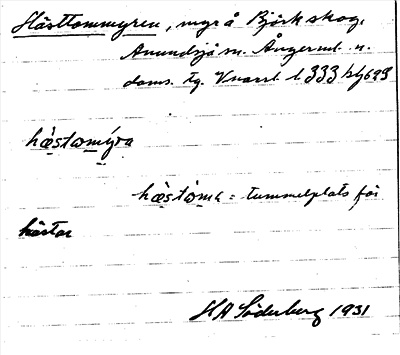 Hästtommyren, myr å Björkskog,
Anundsjö sn. Ångerml. n.
doms. tg. Kvarnl. l. 333 h/j 693
hæstomýra
hæstoma = tummelplats för
hästar
H A Söderberg 1931